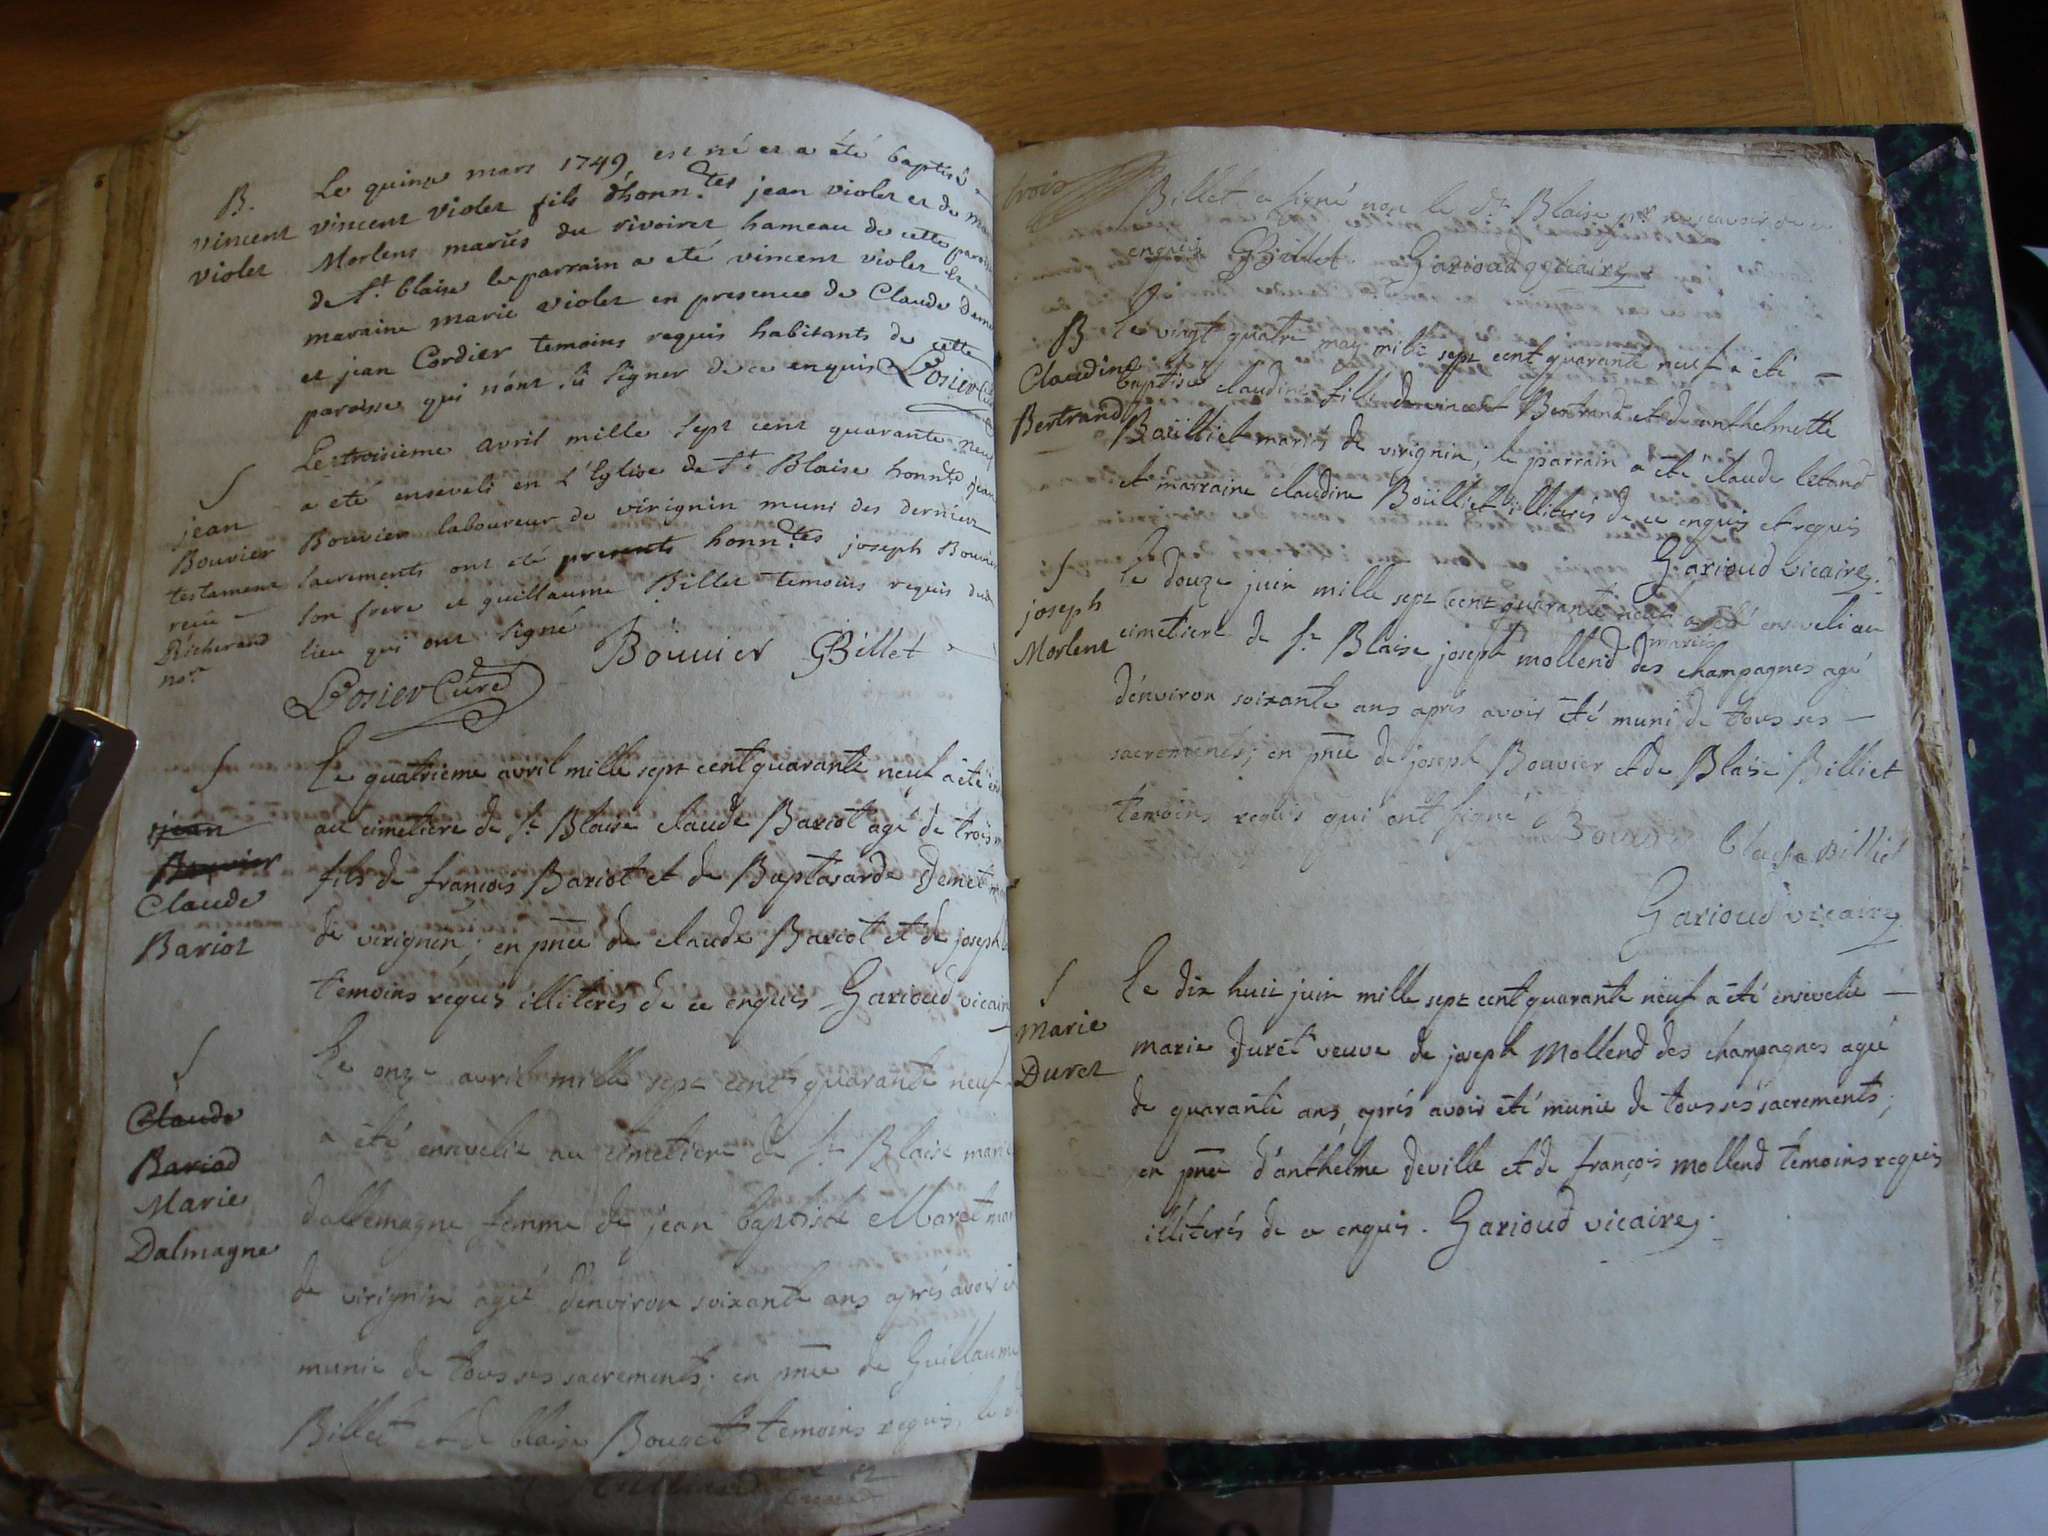 B.
vincent
violet
Le quinze mars 1749 est né et a été baptisé
vincent violet fils d'honn.tes jean violet et de
Morlens mariés du rivoiret hameau de cette paroisse
de St. blaise le parrain a eté vincent violet et
maraine marie violet en presence de Claude
et jean Cordier temoins requis habitants de cette
paroisse qui n'ont sû signer de ce enquis Losier Curé
S
jean
Bouvier
testament
reciu
Richerand
nore
Le troisieme avril mille sept cent quarante neuf
a eté enseveli en l'Eglise de St. Blaise honnte jean
Bouvier laboureur de virignin muni des derniers
sacrements ont eté presents honn.tes joseph Bouvier
son frere et guillaume Billet temoins requis dud
lieu qui ont signé
Bouvier GBillet
Losier Curé
S
jean
Bouvier
Claude
Bariot
Le quatrieme avril mille sept cent quarante neuf a été
au cimetiere de St Blaise claude Bariot agé de trois
fils de françois Bariot et de Baptasarde Demet
de virignin; en pnce de claude Bariot et de joseph
temoins requis illiterés de ce enquis Garioud vicaire
S
Claude
Bariod
Marie
Dalmagne
Le onze avril mille sept cent quarante neuf
a été ensevelie au cimetiere de St Blaise marie
dallemagne femme de jean baptiste Maret
de virignin agée d'environ soixante ans après avoir
munie de tous ses sacrements; en pnce de Guillaume
Billet et de blaise Bouget temoins requis, le
trois
Billet a signé non le dt Blaise pr ne scavoir de ce
enquis GBillet. Garioud vicaire
B
Claudine
Bertrand
Le vingt quatre may mille sept cent quarante neuf a été
baptisée claudine fille de vincent Bertrand et de anthelmette
Boüilliet mariés de virignin; le parrain a été claude letand
et marraine claudine Boüilliet illiterés de ce enquis et requis
Garioud vicaire.
S
joseph
Morlent
Le douze juin mille sept cent quarante neuf a été enseveli au
cimetiere de St Blaise joseph mollend des champagnes agé
d'environ soixante ans après avoir été muni de tous ses
sacrements; en pnce de joseph Bouvier et de Blaise Billiet
temoins requis qui ont signé
blaise Billiet
Garioud vicaire
S
Marie
Duret
Le dix huit juin mille sept cent quarante neuf a été ensevelie
marie duret veuve de joseph Mollend des champagnes agée
de quarante ans, après avoir été munie de tous ses sacrements;
en pnce d'anthelme deville et de françois mollend temoins requis
illiterés de ce enquis. Garioud vicaire.